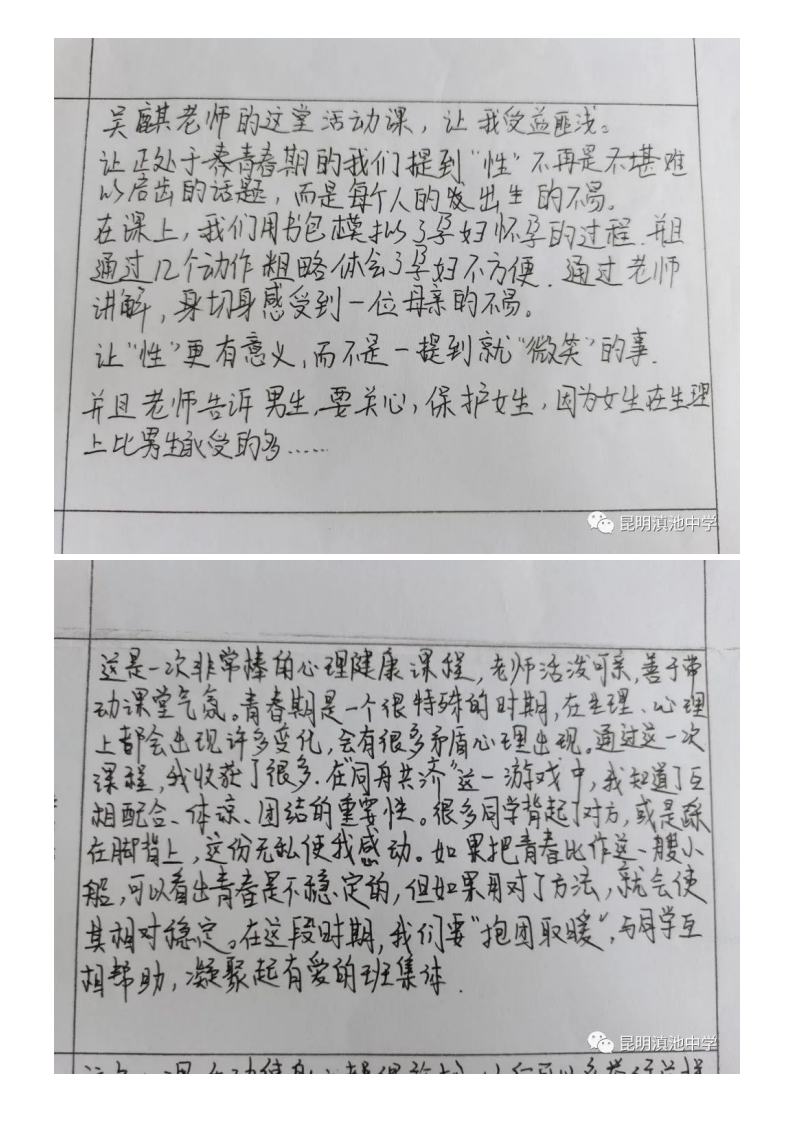 吴麒老师的这堂活动课，让我受益匪浅。
让正处于青春期的我们提到“性”不再是不堪难
以启齿的话题，而是每个人的发出生的不易。
在课上，我们用书包模拟了孕妇怀孕的过程.并且
通过12个动作粗略体会了孕妇不方便.通过老师
讲解，身切身感受到一位母亲的不易。
让“性”更有意义，而不是一提到就“微笑”的事.
并且老师告诉男生，要关心，保护女生，因为女生在生理
上比男生承受的多……
昆明滇池中学
这是一次非常棒的心理健康课程，老师活泼可亲，善于带
动课堂气氛。青春期是一个很特殊的时期，在生理、心理
上都会出现许多变化，会有很多矛盾心理出现。通过这一次
课程，我收获了很多.在“同舟共济”这一游戏中，我知道了互
相配合、体谅、团结的重要性。很多同学背起了对方，或是踩
在脚背上，这份无私使我感动。如果把青春比作这一艘小
船，可以看出青春是不稳定的，但如果用对了方法，就会使
其相对稳定。在这段时期，我们要“抱团取暖”，与同学互
相帮助，凝聚起有爱的班集体.
昆明滇池中学